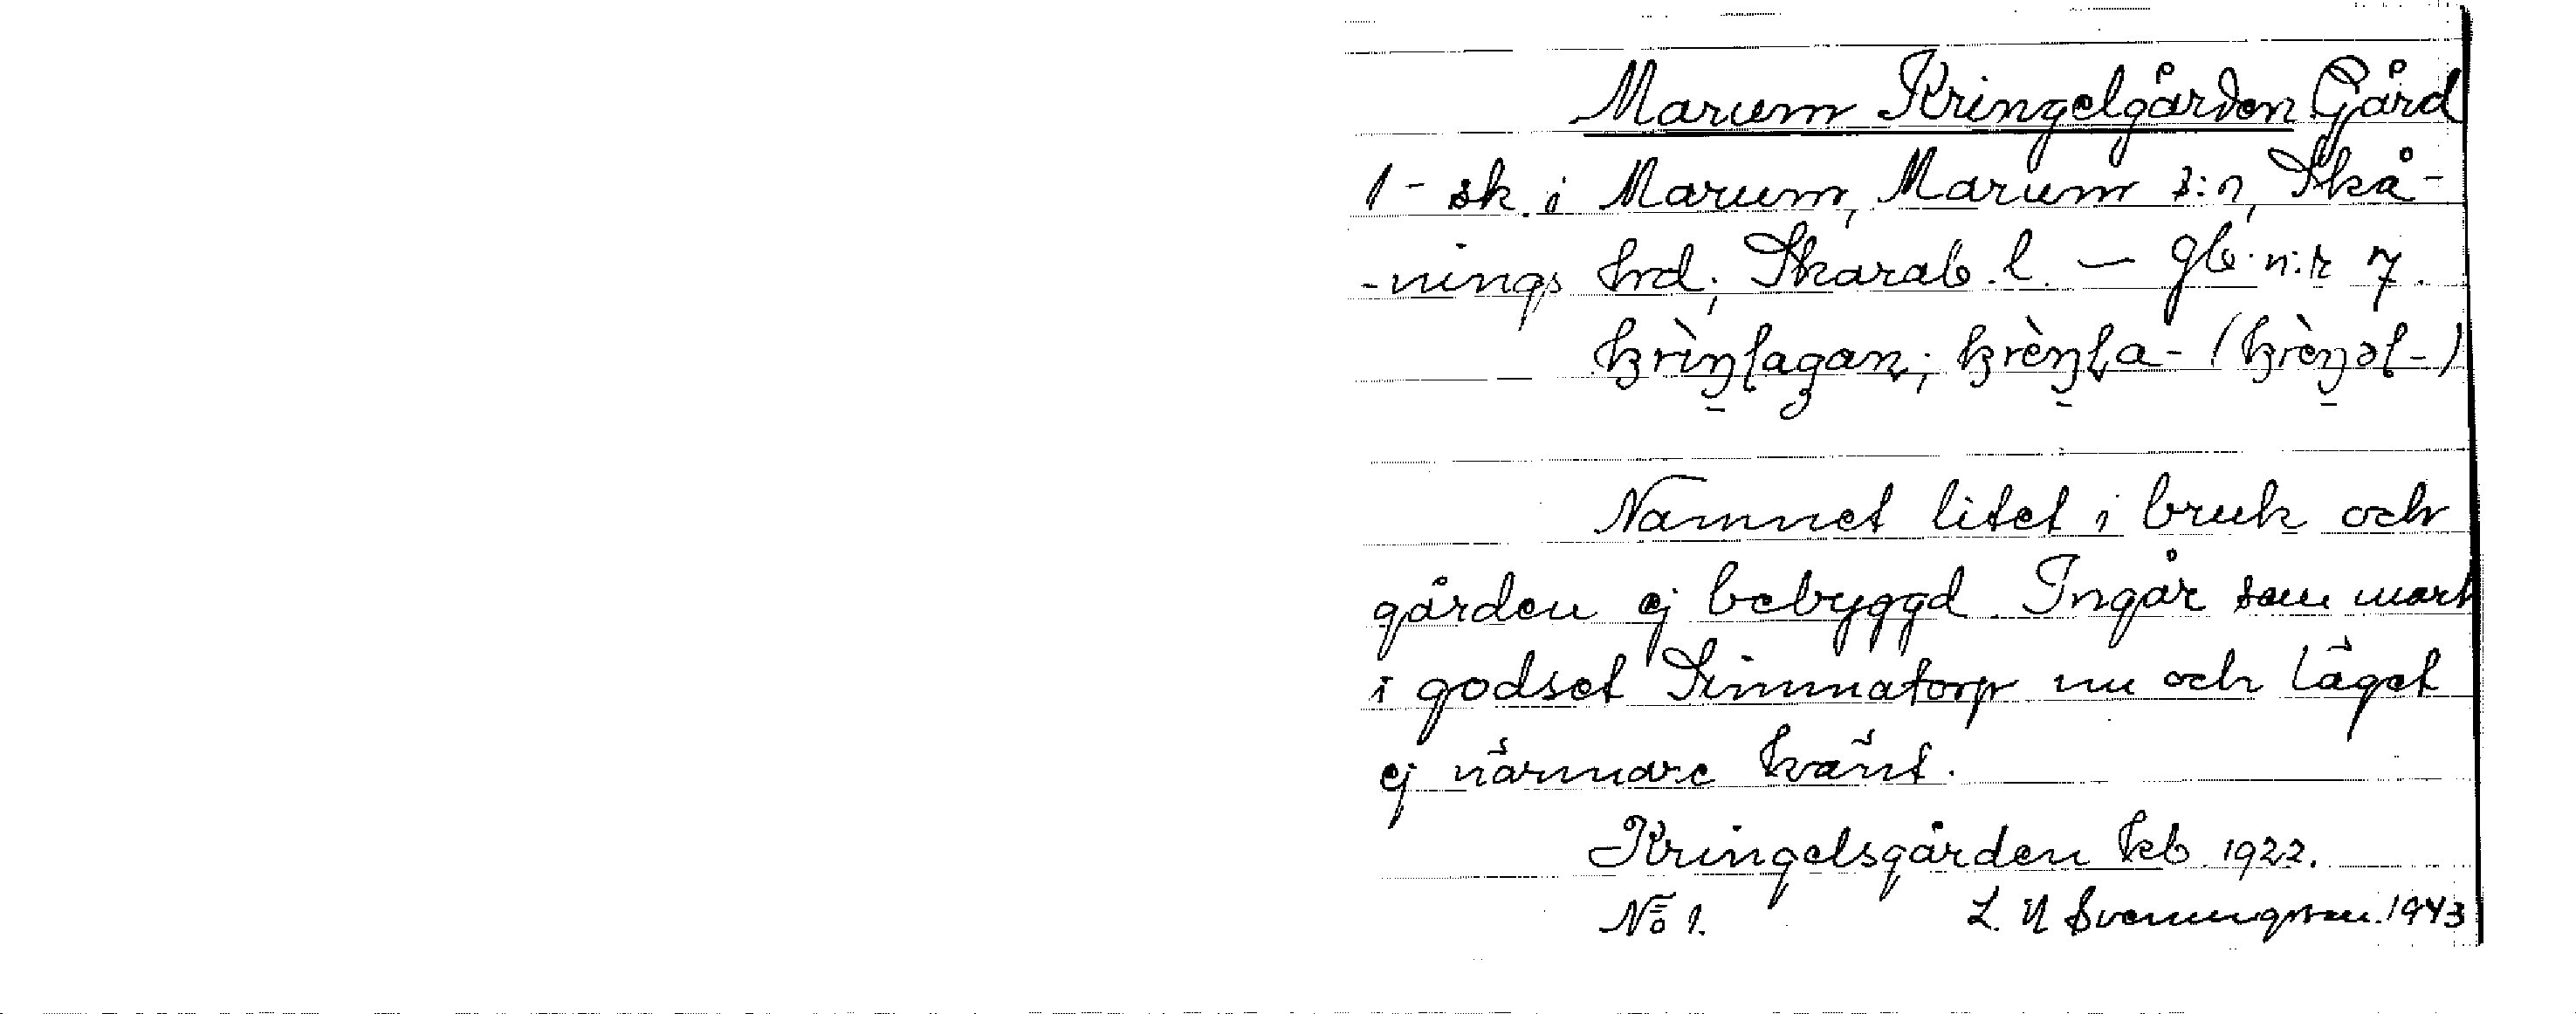 Marum Kringelgården Gård
1 - sk. i Marum, Marum s:n, Skå-
-nings hrd; Skarab. l. — gb. n:r 7.
krìŋlagaɳ; krèŋla- (krèŋəl-)
Namnet litet i bruk och
gården ej bebyggd. Ingår som mark
i godset Simmatorp nu och läget
ej närmare känt.
Kringelsgården kb 1922.
No 1. L. N Svenungsson. 1943